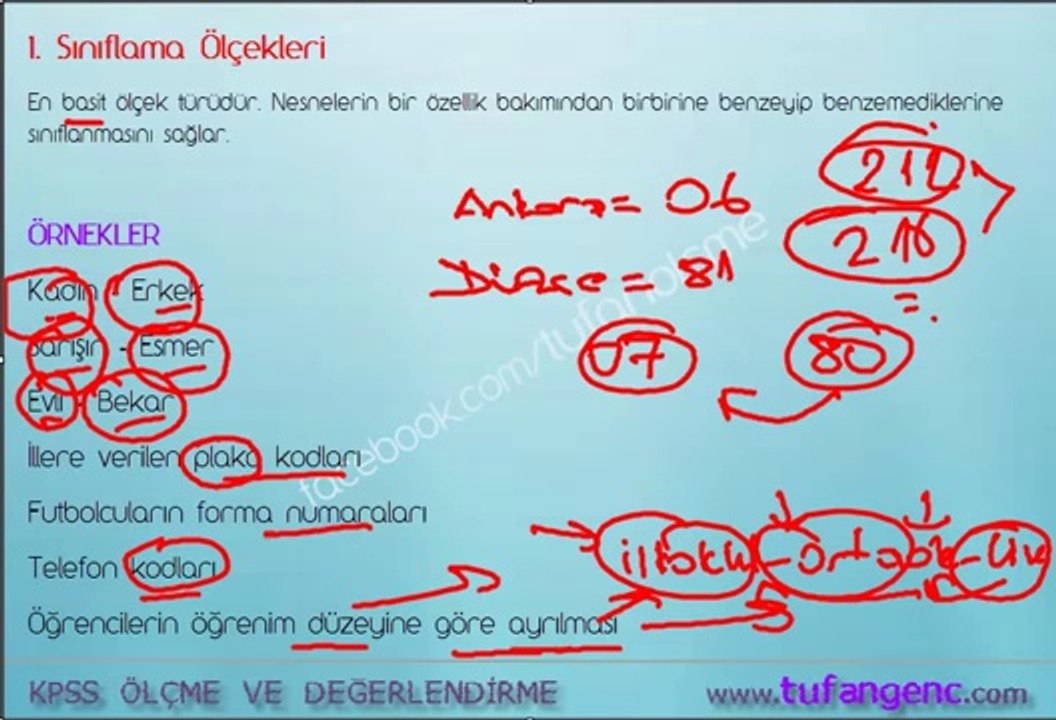 1. Sınıflama Ölçekleri
En basit ölçek türüdür. Nesnelerin bir özellik bakımından birbirine benzeyip benzemediklerine
sınıflanmasını sağlar.
ÖRNEKLER
Kadın - Erkek
Sarışın - Esmer
Evli - Bekar
İllere verilen plaka kodları
Futbolcuların forma numaraları
Telefon kodları
Öğrencilerin öğrenim düzeyine göre ayrılması
= 06
= 81
07 80
212
216
facebook.com/tufanolsme
KPSS ÖLÇME VE DEĞERLENDİRME
www.tufangenc.com